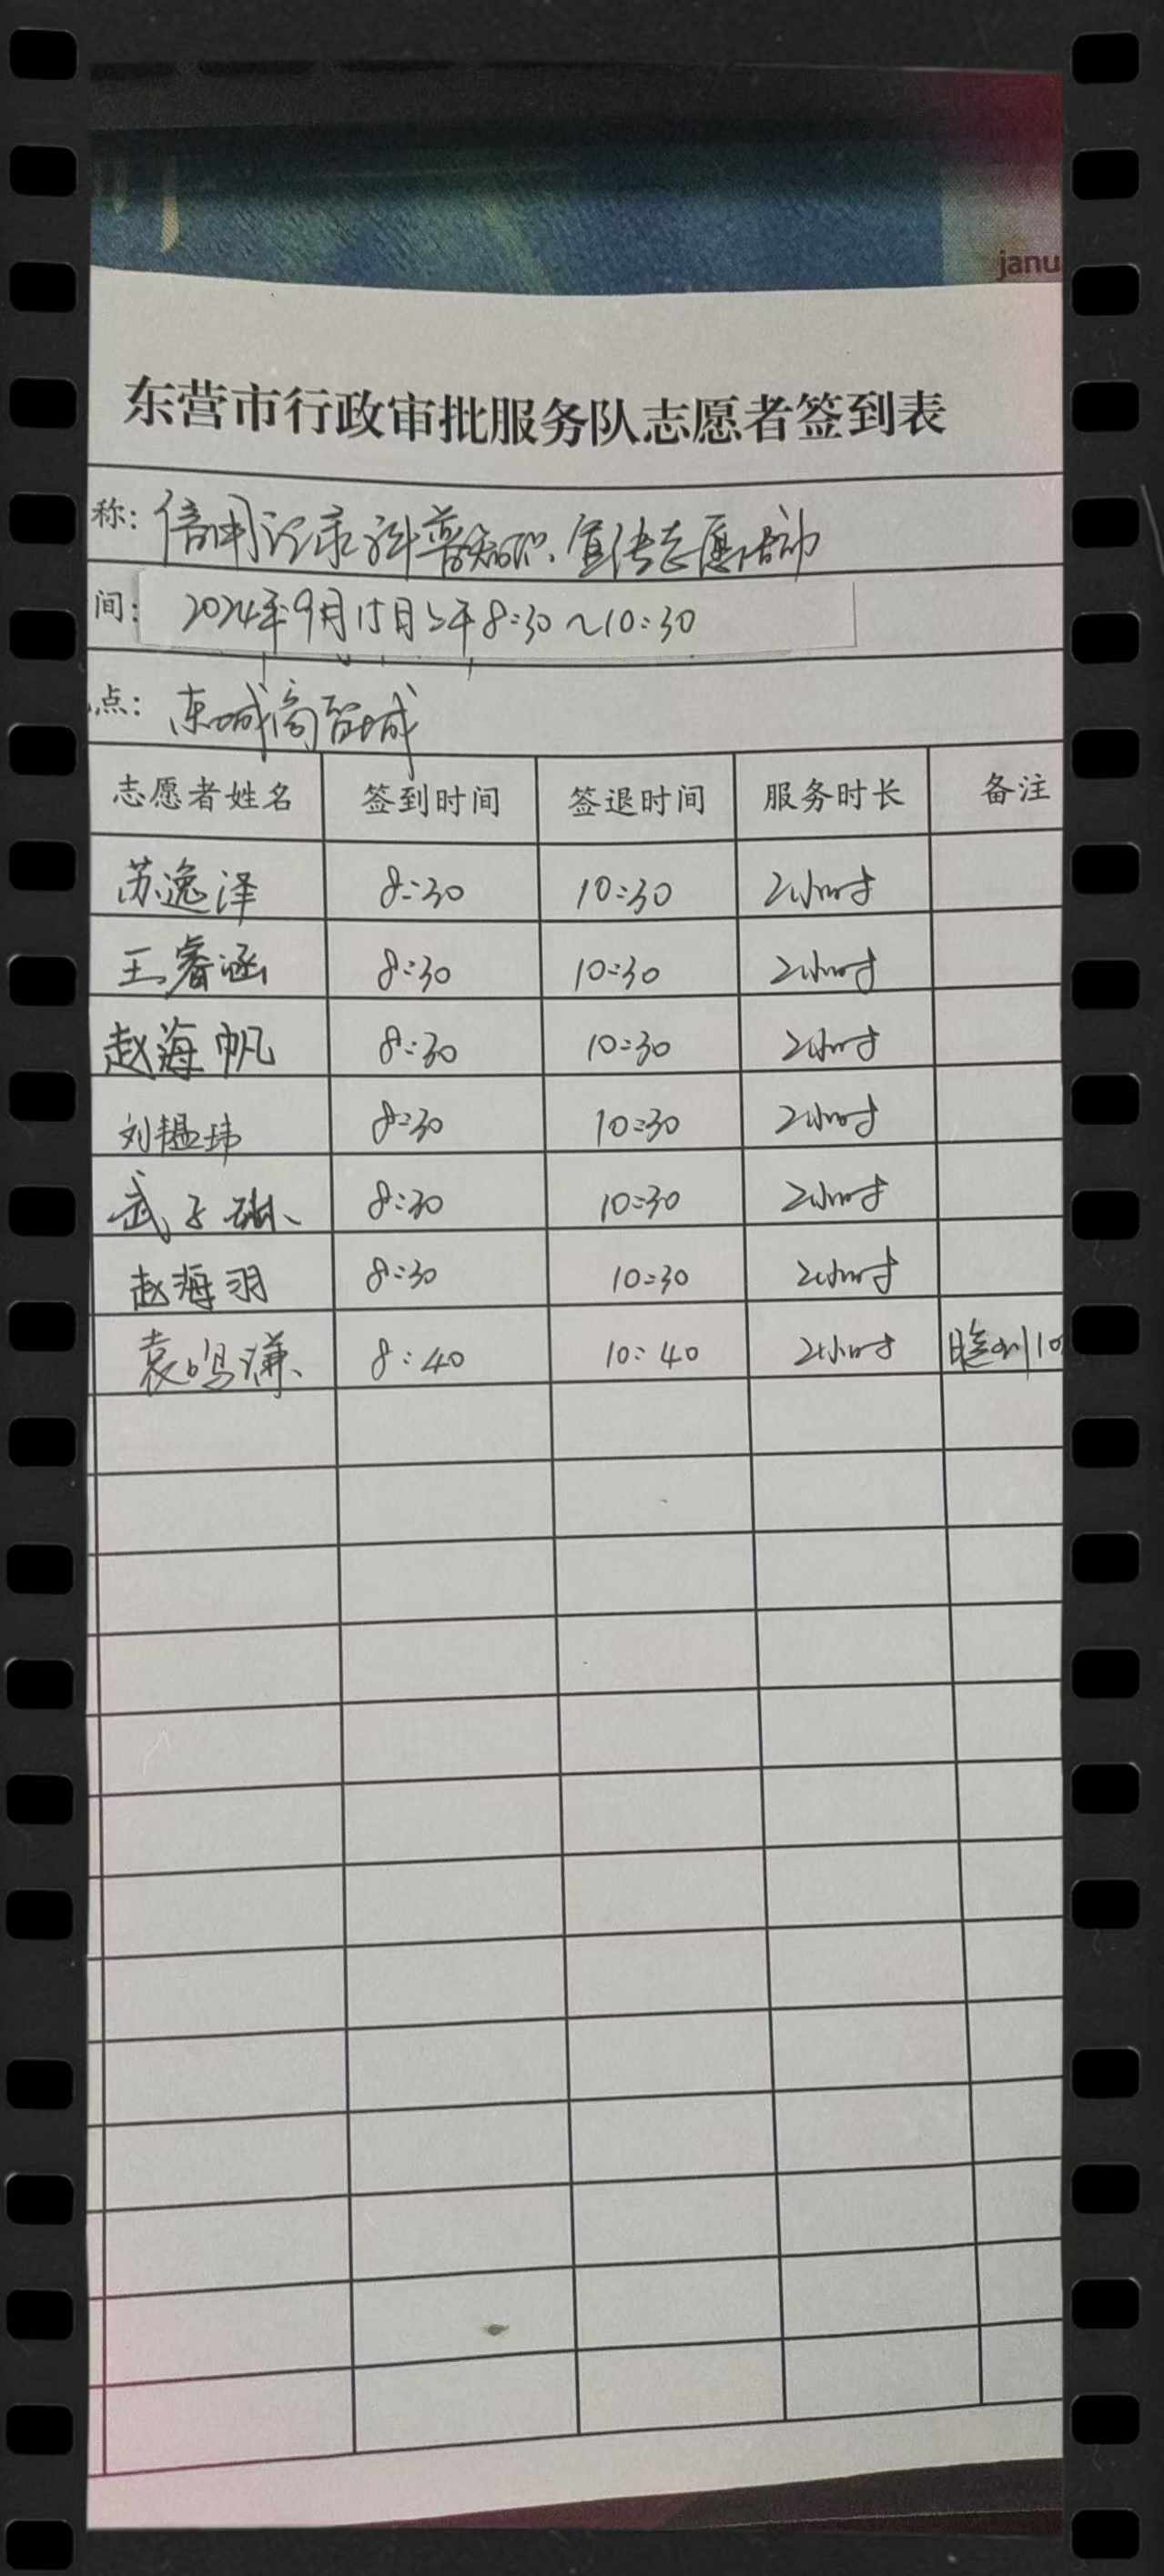 janu
东营市行政审批服务队志愿者签到表
称: 信用记录科普知识宣传志愿活动
间: 2024年9月15日上午8:30~10:30
点: 东城商智城
志愿者姓名 签到时间 签退时间 服务时长 备注
苏逸泽 8:30 10:30 2小时
王睿涵 8:30 10:30 2小时
赵海帆 8:30 10:30 2小时
刘韫玮 8:30 10:30 2小时
武子琳 8:30 10:30 2小时
赵海羽 8:30 10:30 2小时
袁鸣谦 8:40 10:40 2小时 晚到10